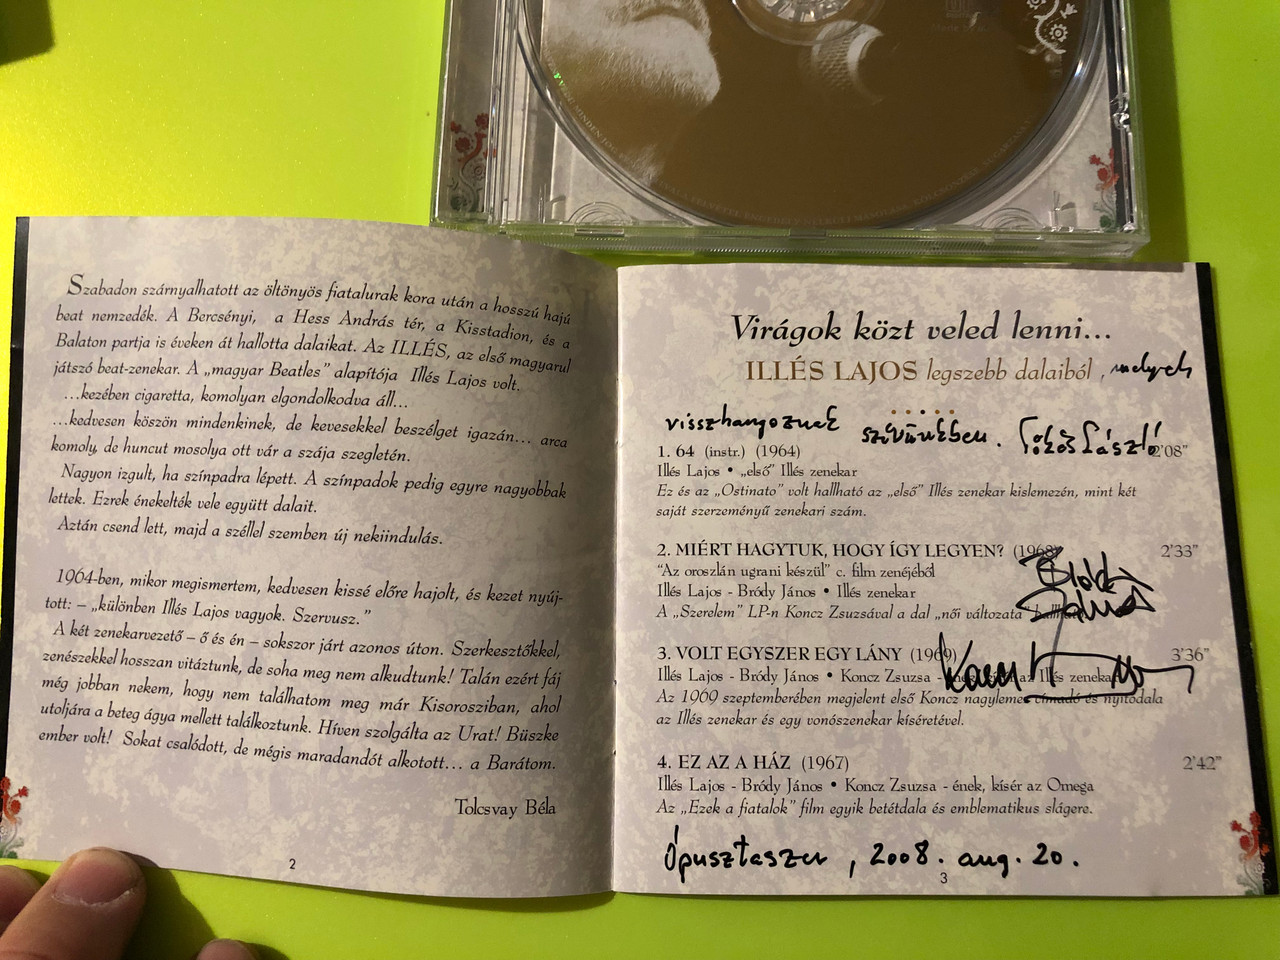 Szabadon szárnyalhatott az öltönyös fiatalurak kora után a hosszú hajú
beat nemzedék. A Bercsényi, a Hess András tér, a Kisstadion, és a
Balaton partja is éveken át hallotta dalaikat. Az ILLÉS, az első magyarul
játszó beat-zenekar. A „magyar Beatles” alapítója Illés Lajos volt.
...kezében cigaretta, komolyan elgondolkodva áll...
...kedvesen köszön mindenkinek, de kevesekkel beszélget igazán... arca
komoly, de huncut mosolya ott vár a szája szegletén.
Nagyon izgult, ha színpadra lépett. A színpadok pedig egyre nagyobbak
lettek. Ezrek énekelték vele együtt dalait.
Aztán csend lett, majd a széllel szemben új nekiindulás.
1964-ben, mikor megismertem, kedvesen kissé előre hajolt, és kezet nyúj-
tott: – „különben Illés Lajos vagyok. Szervusz.”
A két zenekarvezető – ő és én – sokszor járt azonos úton. Szerkesztőkkel,
zenészekkel hosszan vitáztunk, de soha meg nem alkudtunk! Talán ezért fáj
még jobban nekem, hogy nem találhatom meg már Kisorosziban, ahol
utoljára a beteg ágya mellett találkoztunk. Híven szolgálta az Urat! Büszke
ember volt! Sokat csalódott, de mégis maradandót alkotott... a Barátom.
Tolcsvay Béla
2
Virágok közt veled lenni...
ILLÉS LAJOS legszebb dalaiból , melyek
visszhangoznak szívünkben. Tőkés László
1. 64 (instr.) (1964) 2’08”
Illés Lajos • „első” Illés zenekar
Ez és az „Ostinato” volt hallható az „első” Illés zenekar kislemezén, mint két
saját szerzeményű zenekari szám.
2. MIÉRT HAGYTUK, HOGY ÍGY LEGYEN? (1968) 2’33”
“Az oroszlán ugrani készül” c. film zenéjéből
Illés Lajos - Bródy János • Illés zenekar
A „Szerelem” LP-n Koncz Zsuzsával a dal „női változata”
3. VOLT EGYSZER EGY LÁNY (1969) 3’36”
Illés Lajos - Bródy János • Koncz Zsuzsa - az Illés zenekar
Az 1969 szeptemberében megjelent első Koncz nagylemez címadó és nyitódala
az Illés zenekar és egy vonószenekar kíséretével.
4. EZ AZ A HÁZ (1967) 2’42”
Illés Lajos - Bródy János • Koncz Zsuzsa - ének, kísér az Omega
Az „Ezek a fiatalok” film egyik betétdala és emblematikus slágere.
Ópusztaszer, 2008. aug. 20.
3